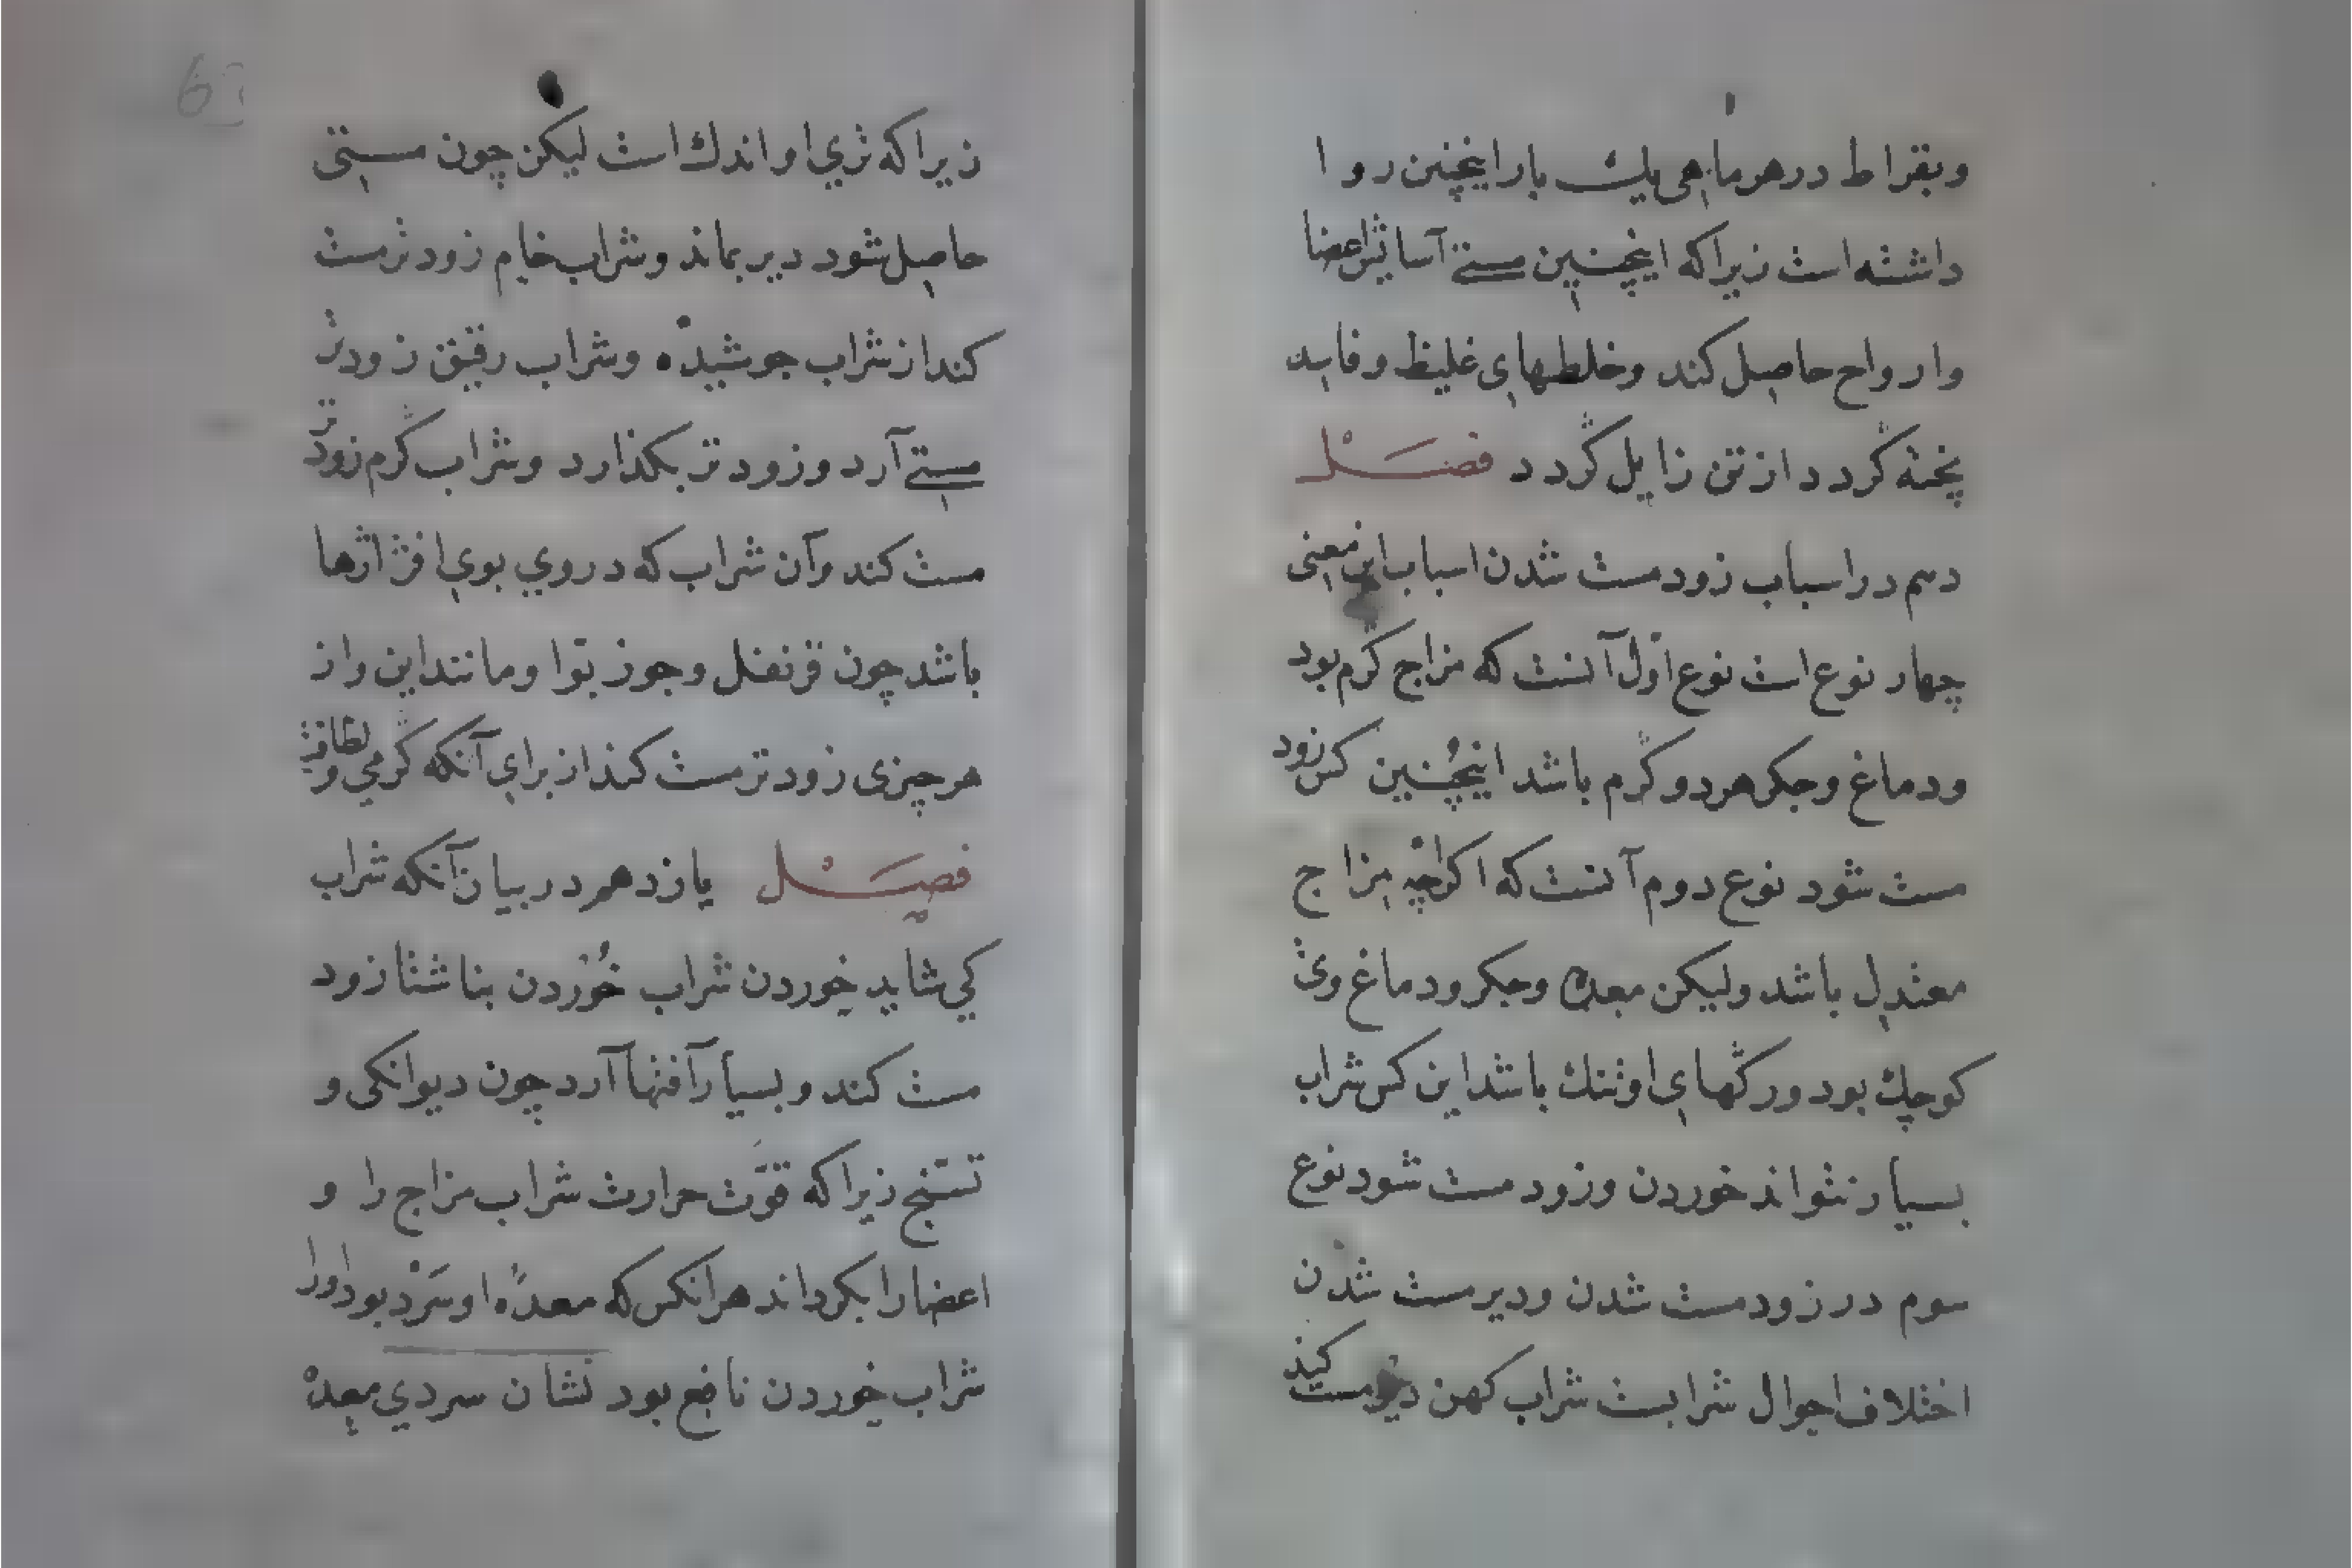 وبقراط درهر ماهی یك بار اینچنین روا
داشته است زیراکه اینچنین مستے آسایش اعضا
وارواح حاصل کند وخلطهای غلیظ وفاسد
پخته گردد از تن زایل گردد فصل
دهم در اسباب زود مست شدن اسباب این معنی
چهار نوع است نوع اوّل آنست که مزاج گرم بود
ودماغ وجکر هردو گرم باشد اینچُنین کس زود
مست شود نوع دوم آنست که اکرچه مزاج
معتدل باشد ولیکن معده وجکر ودماغ وی
کوچك بود ورگهای او تنك باشد این کس شراب
بسیار نتواند خوردن وزود مست شود نوع
سوم در زود مست شدن ودیر مست شدن
اختلاف احوال شرابست شراب کهن دیر مست کند
زیراکه تری او اندك است لیکن چون مستی
حاصل شود دیر بماند وشراب خام زودتر مست
کند از شراب جوشیده وشراب رقیق زودتر
مستے آرد وزودتر بکذارد وشراب گرم زودتر
مست کند وآن شراب که در وی بوی افزارها
باشد چون قرنفل وجوز بوّا ومانند این واز
هر چیزی زودتر مست کند از برای آنکه گرمی ولطافت
فصل یازدهم در بیان آنکه شراب
کی شاید خوردن شراب خُوردن بناشتا زود
مست کند وبسیار آفتها آرد چون دیوانکی و
تشنج زیراکه قوّت حرارت شراب مزاج را و
اعضا را بکرداند هر انکس که معدهٔ او سَرْد بود اورا
شراب خوردن نافع بود نشان سردی معده